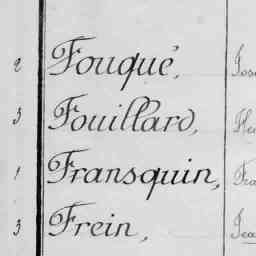 2 Fouqué,
3 Fouillard,
1 Fransquin,
3 Frein,